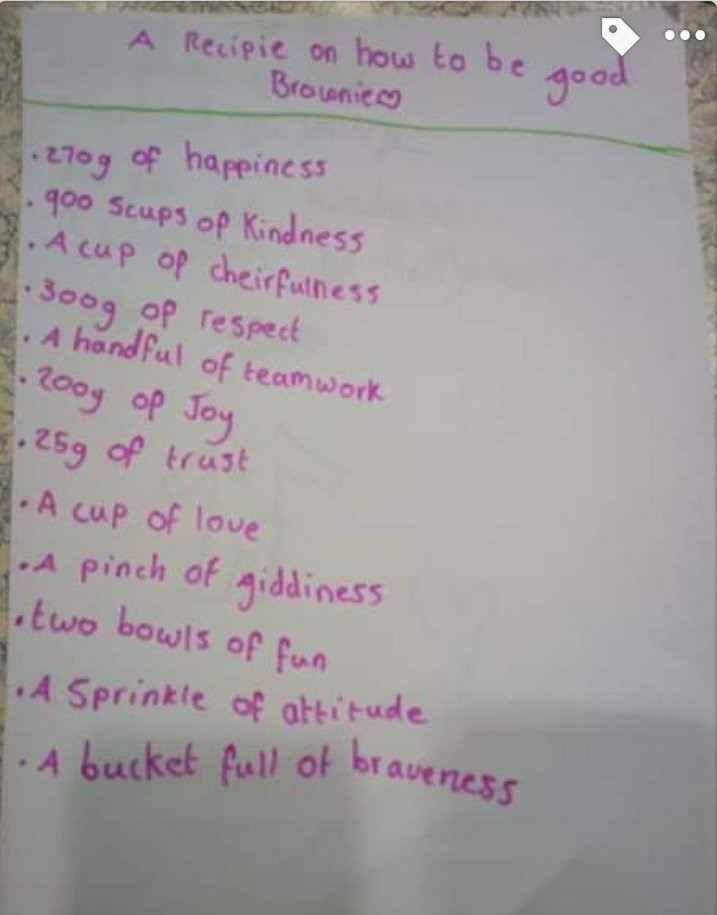 A Recipie on how to be good
Brownie♡
.270g of happiness
.900 scups of Kindness
.A cup of cheirfulness
.300g of respect
.A handful of teamwork
.200g of Joy
.25g of trust
.A cup of love
.A pinch of giddiness
.two bowls of fun
.A Sprinkle of attitude
.A bucket full of braveness